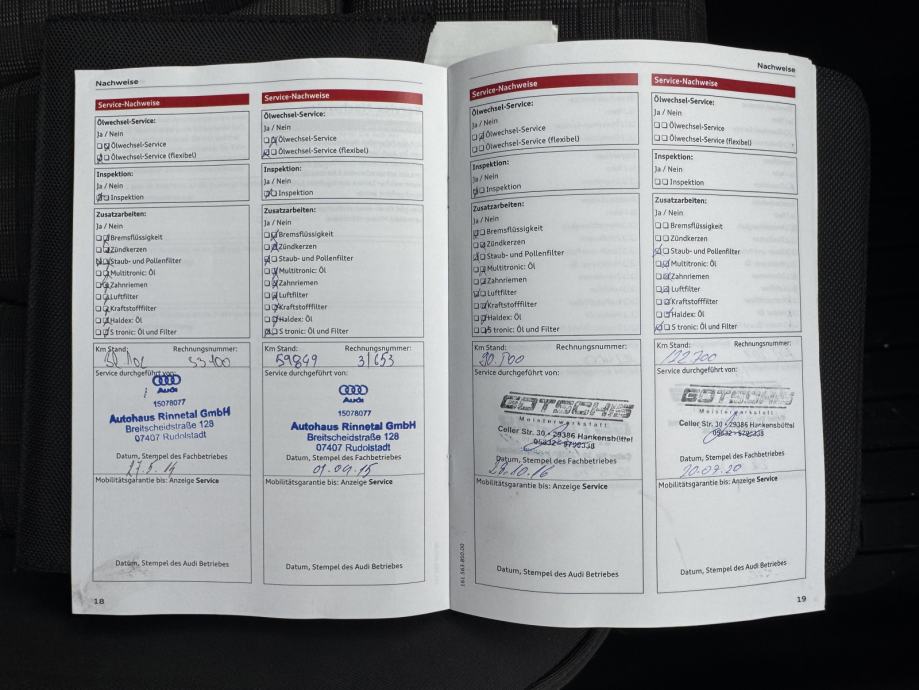 Nachweise
Service-Nachweise
Ölwechsel-Service:
Ja / Nein
Ölwechsel-Service
Ölwechsel-Service (flexibel)
Inspektion:
Ja / Nein
Inspektion
Zusatzarbeiten:
Ja / Nein
Bremsflüssigkeit
Zündkerzen
Staub- und Pollenfilter
Multitronic: Öl
Zahnriemen
Luftfilter
Kraftstofffilter
Haldex: Öl
S tronic: Öl und Filter
Km Stand: Rechnungsnummer:
53100
Service durchgeführt von:
Audi
15078077
Autohaus Rinnetal GmbH
Breitscheidstraße 128
07407 Rudolstadt
Datum, Stempel des Fachbetriebes
27.5.14
Mobilitätsgarantie bis: Anzeige Service
Datum, Stempel des Audi Betriebes
18
Service-Nachweise
Ölwechsel-Service:
Ja / Nein
Ölwechsel-Service
Ölwechsel-Service (flexibel)
Inspektion:
Ja / Nein
Inspektion
Zusatzarbeiten:
Ja / Nein
Bremsflüssigkeit
Zündkerzen
Staub- und Pollenfilter
Multitronic: Öl
Zahnriemen
Luftfilter
Kraftstofffilter
Haldex: Öl
S tronic: Öl und Filter
Km Stand: Rechnungsnummer:
59849 31653
Service durchgeführt von:
Audi
15078077
Autohaus Rinnetal GmbH
Breitscheidstraße 128
07407 Rudolstadt
Datum, Stempel des Fachbetriebes
01.09.15
Mobilitätsgarantie bis: Anzeige Service
Datum, Stempel des Audi Betriebes
Service-Nachweise
Ölwechsel-Service:
Ja / Nein
Ölwechsel-Service
Ölwechsel-Service (flexibel)
Inspektion:
Ja / Nein
Inspektion
Zusatzarbeiten:
Ja / Nein
Bremsflüssigkeit
Zündkerzen
Staub- und Pollenfilter
Multitronic: Öl
Zahnriemen
Luftfilter
Kraftstofffilter
Haldex: Öl
S tronic: Öl und Filter
Km Stand: Rechnungsnummer:
Service durchgeführt von:
GOTSCHIS
Meisterwerkstatt
Celler Str. 30 - 29386 Hankensbüttel
Datum, Stempel des Fachbetriebes
Mobilitätsgarantie bis: Anzeige Service
Datum, Stempel des Audi Betriebes
161.563.850.00
Nachweise
Service-Nachweise
Ölwechsel-Service:
Ja / Nein
Ölwechsel-Service
Ölwechsel-Service (flexibel)
Inspektion:
Ja / Nein
Inspektion
Zusatzarbeiten:
Ja / Nein
Bremsflüssigkeit
Zündkerzen
Staub- und Pollenfilter
Multitronic: Öl
Zahnriemen
Luftfilter
Kraftstofffilter
Haldex: Öl
S tronic: Öl und Filter
Km Stand: Rechnungsnummer:
122700
Service durchgeführt von:
GOTSCHIS
Meisterwerkstatt
Celler Str. 30 - 29386 Hankensbüttel
Datum, Stempel des Fachbetriebes
Mobilitätsgarantie bis: Anzeige Service
Datum, Stempel des Audi Betriebes
19